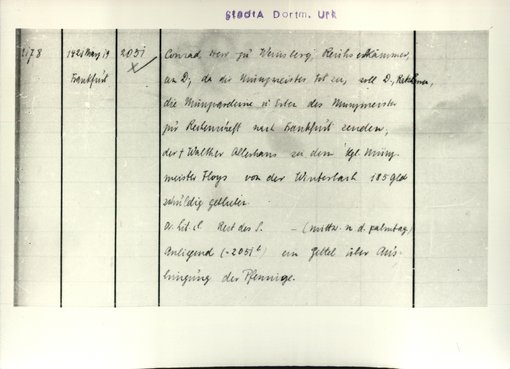 StadtA Dortm. Urk
2178 1428 März 19 2051 Conrad Herr zu Weinsberg Reichserbkämmer,
Frankfurt an D; da der Münzmeister tot sei, soll D.
die Münzwardeine u. Erben des Münzmeister
zur Rechenschaft nach Frankfurt senden,
der + Walther Allerhans sei dem kgl. Münz-
meister Floys von der Winterbach 185 Gld
schuldig geblieben.
Or. lit. cl. Rest des S. - (mittw. n. d. palmtag)
Anliegend (= 2051 a) ein Zettel über Aus-
bringung der Pfennige.